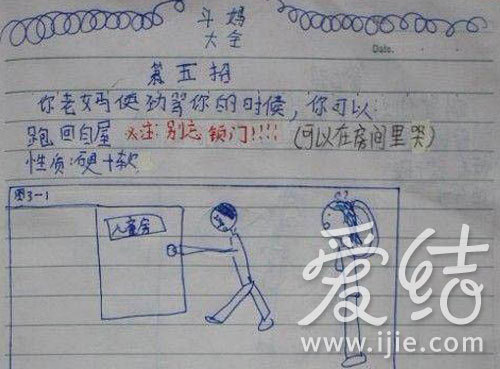 斗妈
大全
Date.
第五招
你老妈使劲骂你的时候，你可以：
跑回自屋 必注：别忘锁门!!!! (可以在房间里哭)
性质：硬+软
图3-1
儿童房
爱结
www.ijie.com